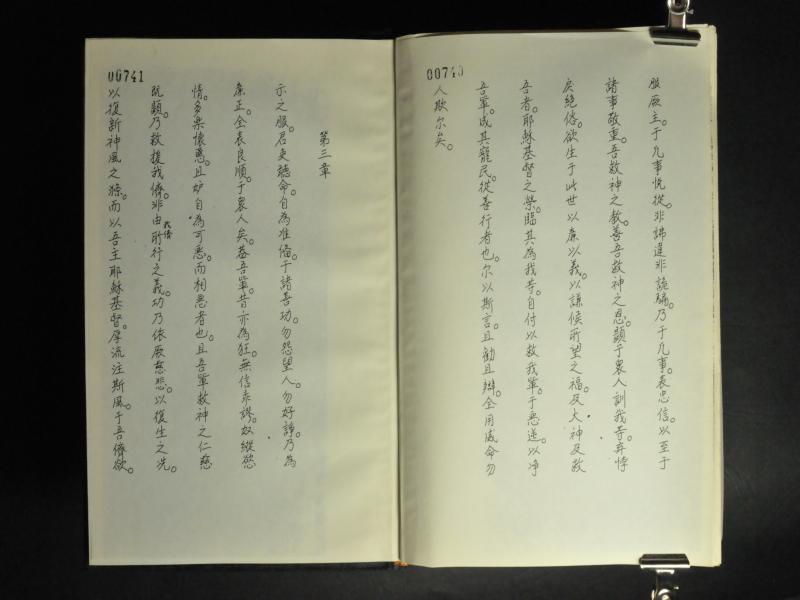 00740
服厥主。于凡事悦從。非謗違非詭騙。乃于凡事。表忠信。以至于
諸事敬重。吾救神之教。善吾救神之恩。顯于衆人訓我等。弃悖
戾絶俗。欲生于此世以廉以義。以謙候所望之福。及大神及救
吾者。耶穌基督之榮臨。其為我等。自付以救我輩。于惡逆。以净
吾輩。成其寵民。從善行者也。尔以斯言。且勸且辯。全用威命勿
人欺尔矣。
00741
第三章
示之服君吏聽命。自為准俻。于諸善功。勿怨望人。勿好諍。乃為
廉正。全表良順。于衆人矣。蓋吾輩。昔亦為狂。無信乖謬。奴縱慾
情。多樂懷慝。且妒自為可惡。而相惡者也。且吾輩救神之仁慈
既顯。乃救援我儕。非由我儕所行之義。功乃依厥慈悲。以復生之洗。
以復新神風之滌。而以吾主耶穌基督。厚流注斯風。于吾儕欲。